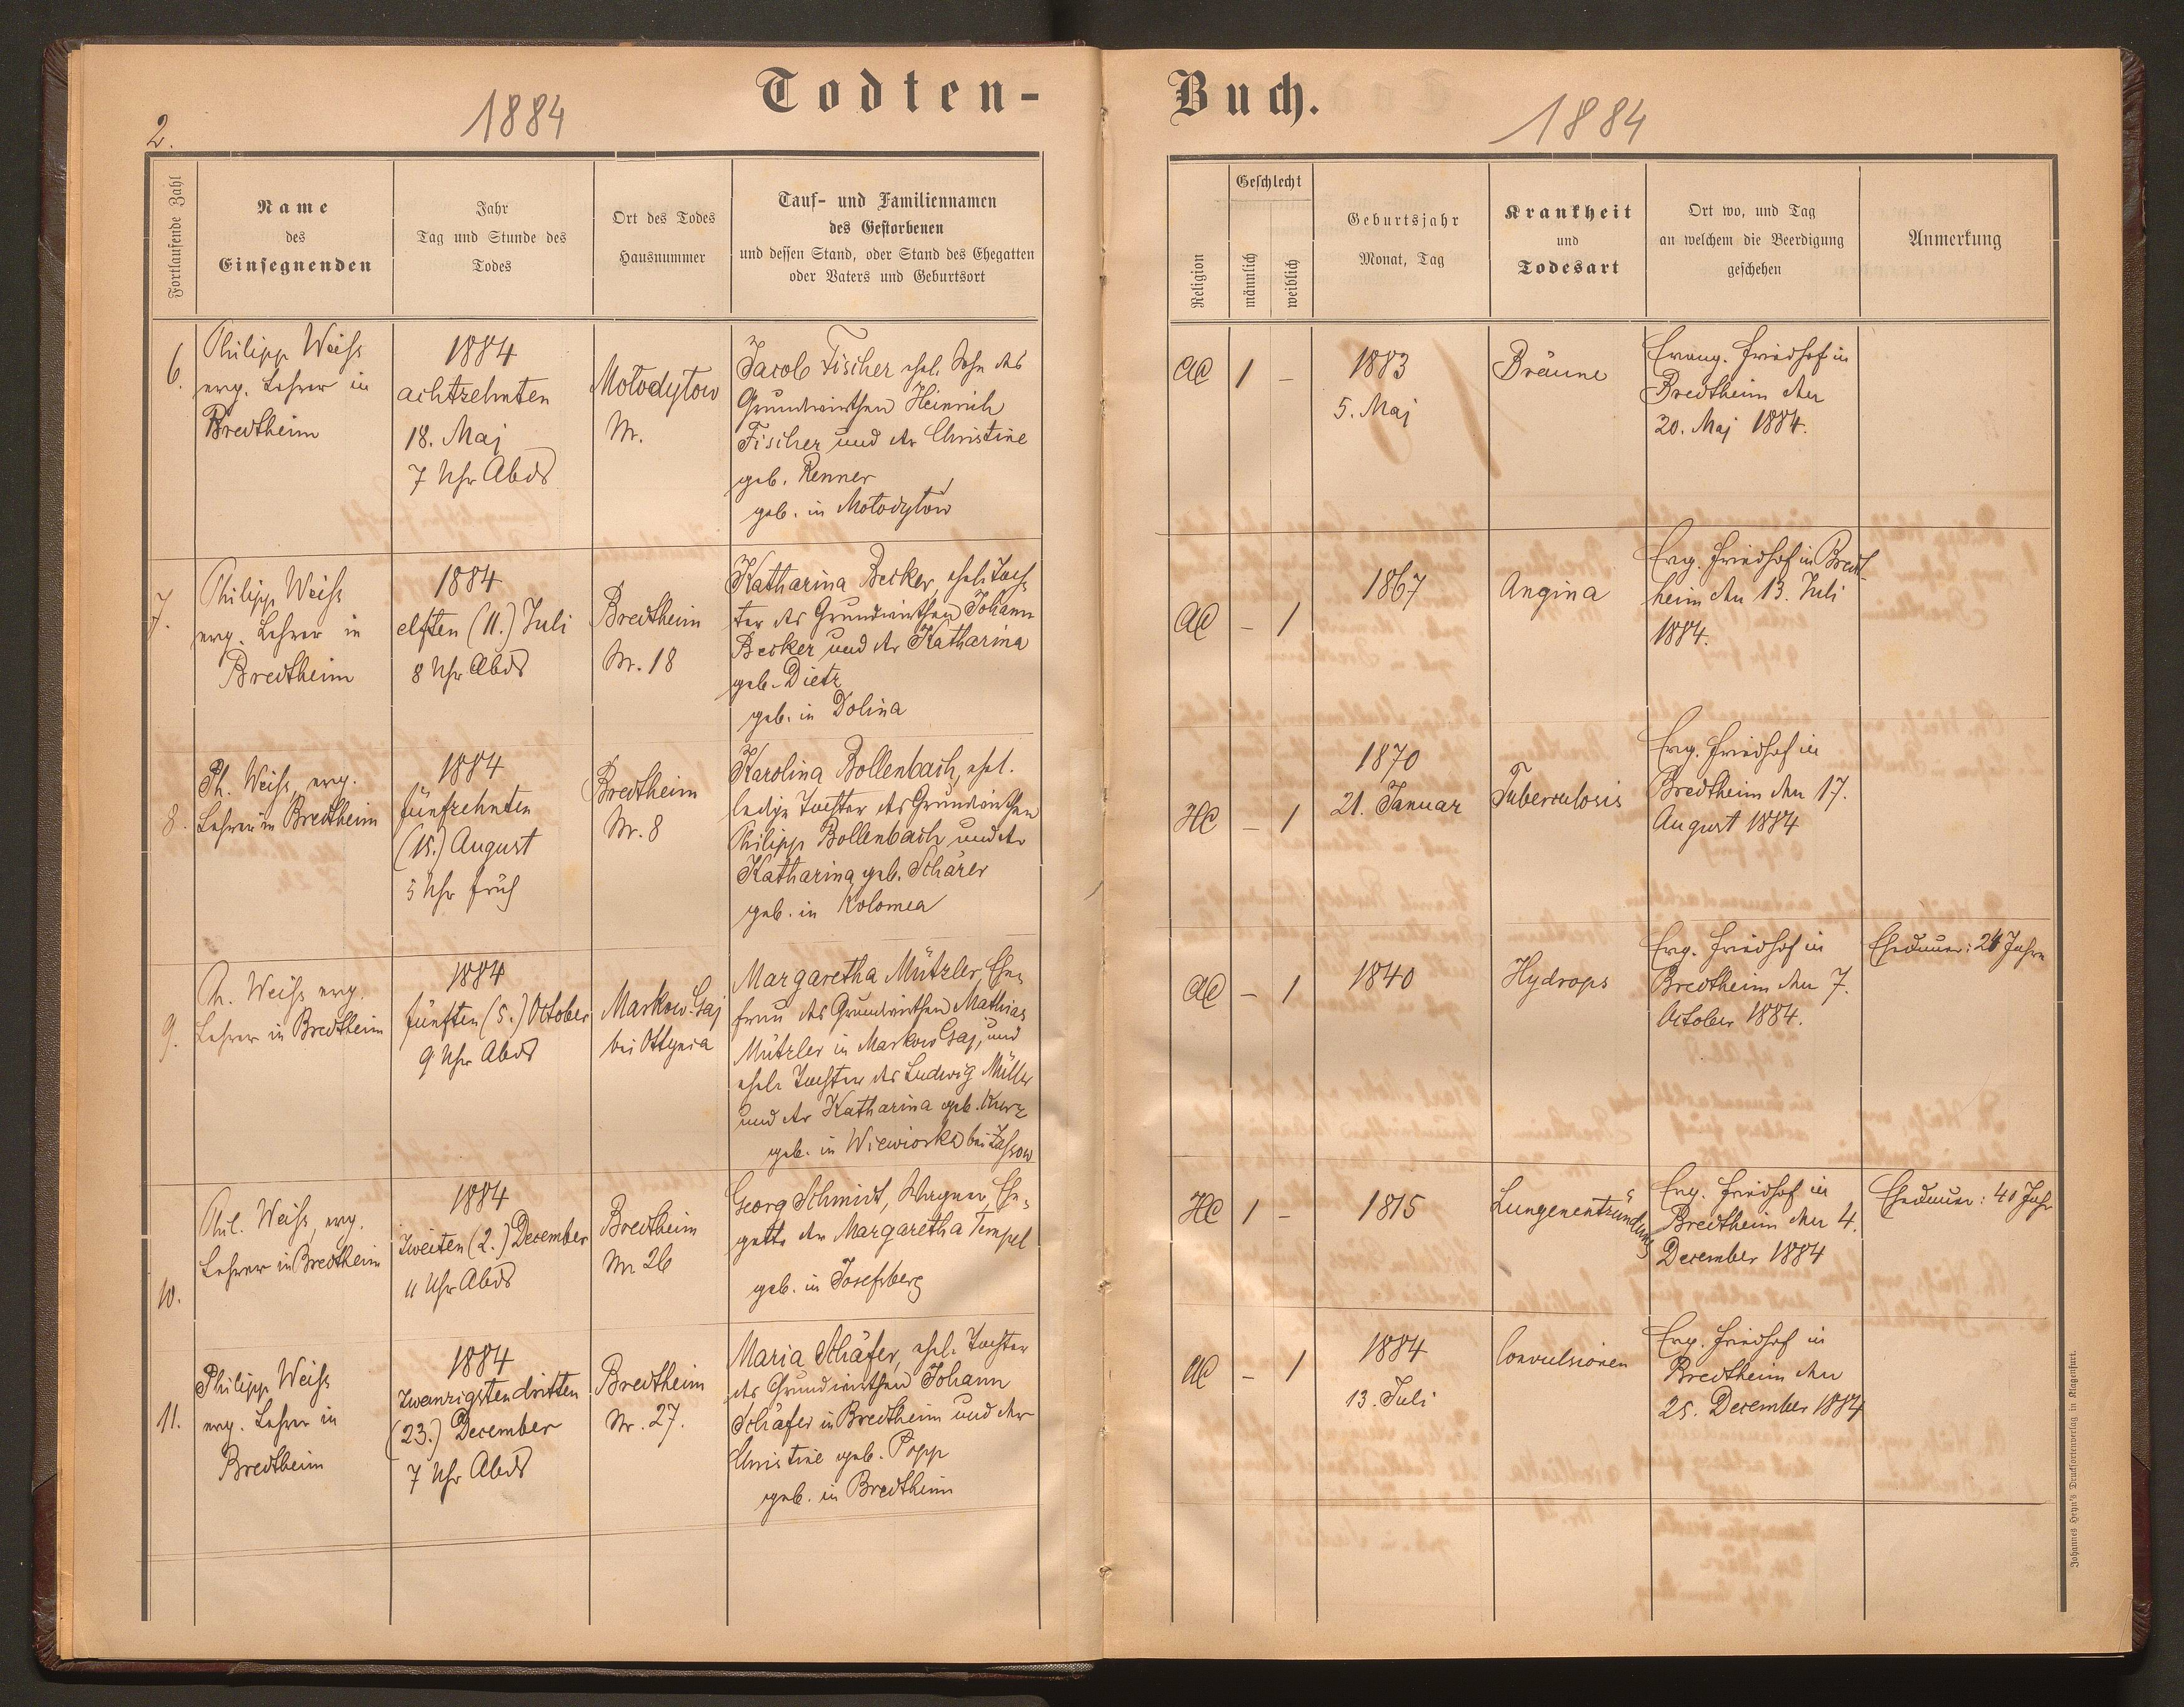 Todten-
Buch.
2.
1884
1884
Fortlaufende Zahl
Name
des
Einsegnenden
Jahr
Tag und Stunde des
Todes
Ort des Todes
Hausnummer
Tauf- und Familiennamen
des Gestorbenen
und dessen Stand, oder Stand des Ehegatten
oder Vaters und Geburtsort
Religion
Geschlecht
männlich
weiblich
Geburtsjahr
Monat, Tag
Krankheit
und
Todesart
Ort wo, und Tag
an welchem die Beerdigung
geschehen
Anmerkung
6.
Philipp Weiss
evg. Lehrer in
Bredtheim
1884
achtzehnten
18. Maj
7 Uhr Abds
Mołodyłow
Nr.
Jacob Fischer ehel. Sohn des
Grundwirthen Heinrich
Fischer und der Christine
geb. Renner
geb. in Mołodyłów
AC
1
–
1883
5. Maj
Bräune
Evang. Friedhof in
Bredtheim den
20. Maj 1884.
7.
Philipp Weiss
evg. Lehrer in
Bredtheim
1884
elften (11.) Juli
8 Uhr Abds
Bredtheim
Nr. 18
Katharina Becker, ehel. Toch-
ter des Grundwirthen Johann
Becker und der Katharina
geb. Dietz
geb. in Dolina
AC
–
1
1867
Angina
Evg. Friedhof in Bredt-
heim den 13. Juli
1884.
8.
Ph. Weiss, evg.
Lehrer in Bredtheim
1884
fünfzehnten
(15.) August
5 Uhr früh
Bredtheim
Nr. 8
Karolina Bollenbach, ehel.
ledige Tochter des Grundwirthen
Philipp Bollenbach und der
Katharina geb. Schärer
geb. in Kolomea
HC
–
1
1870
21. Januar
Tuberculosis
Evg. Friedhof in
Bredtheim den 17.
August 1884
9.
Ph. Weiss evg.
Lehrer in Bredtheim
1884
fünften (5.) October
9 Uhr Abds
Markow-Gaj
bei Ottynia
Margaretha Mützler, Ehe-
frau des Grundwirthen Mathias
Mützler in Markow Gaj, und
ehel. Tochter des Ludwig Müller
und der Katharina geb. Kurz
geb. in Wiewiorka bei
AC
–
1
1840
Hydrops
Evg. Friedhof in
Bredtheim den 7.
October 1884.
Ehedauer: 24 Jahre
10.
Phil. Weiss, evg.
Lehrer in Bredtheim
1884
zweiten (2.) December
11 Uhr Abds
Bredtheim
Nr 26
Georg Schmidt, Wagner, Ehe-
gatte der Margaretha Tempel
geb. in Josefsberg
HC
1
–
1815
Lungenentzündung
Evg. Friedhof in
Bredtheim den 4.
December 1884
Ehedauer: 40 Jahr
11.
Philipp Weiss
evg. Lehrer in
Bredtheim
1884
zwanzigstendritten
(23.) December
7 Uhr Abds
Bredtheim
Nr. 27.
Maria Schäfer, ehel. Tochter
des Grundwirthen Johann
Schäfer in Bredtheim und der
Christine geb. Popp
geb. in Bredtheim
AC
–
1
1884
13. Juli
Convulsionen
Evg. Friedhof in
Bredtheim den
25. December 1884
Johannes Heyn's Drucksortenverlag in Klagenfurt.